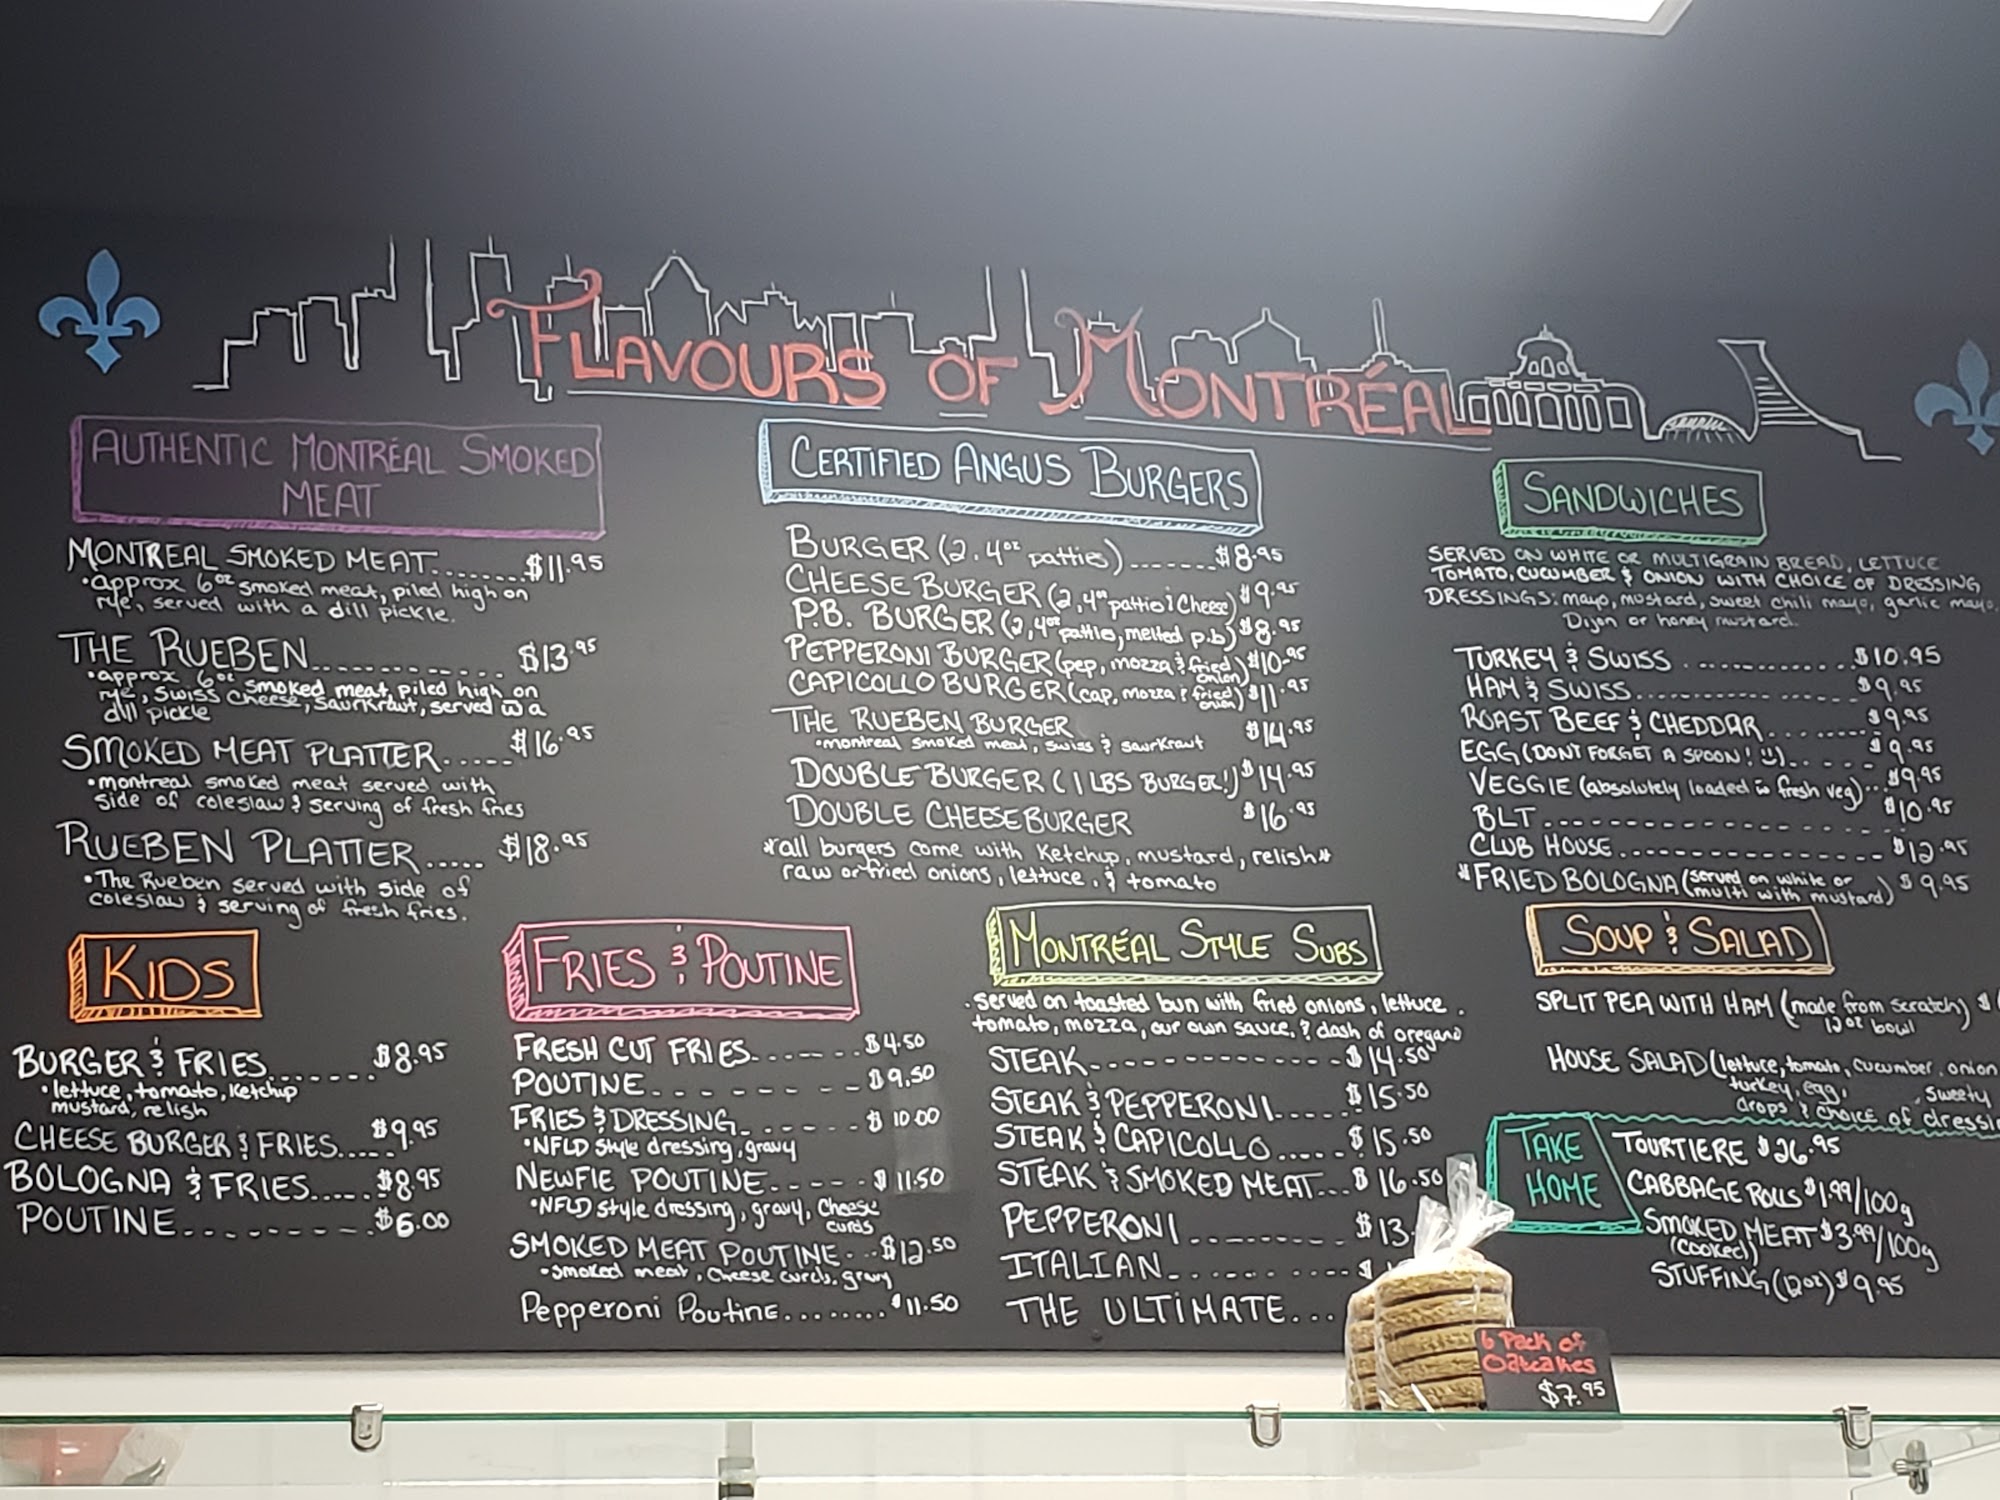 FLAVOURS OF MONTRÉAL
AUTHENTIC MONTRÉAL SMOKED
MEAT
MONTREAL SMOKED MEAT........$11.95
•approx 6oz smoked meat, piled high on
rye, served with a dill pickle.
THE RUEBEN............ $13.95
•approx 6oz smoked meat, piled high on
rye, Swiss Cheese, Saurkraut, served w a
dill pickle
SMOKED MEAT PLATTER.....$16.95
•montreal smoked meat served with
side of coleslaw & serving of fresh fries
RUEBEN PLATTER..... $18.95
•The Rueben served with side of
coleslaw & serving of fresh fries.
CERTIFIED ANGUS BURGERS
BURGER (2, 4oz patties).......$8.95
CHEESE BURGER (2, 4oz pattie & Cheese) $9.95
P.B. BURGER (2, 4oz patties, melted p.b) $8.95
PEPPERONI BURGER (pep, mozza & fried onion) $10.95
CAPICOLLO BURGER (cap, mozza & fried onion) $11.95
THE RUEBEN BURGER $14.95
•montreal smoked meat, swiss & saurkraut
DOUBLE BURGER (1 LBS BURGER!) $14.95
DOUBLE CHEESEBURGER $16.95
*all burgers come with Ketchup, mustard, relish*
raw or fried onions, lettuce, & tomato
SANDWICHES
SERVED ON WHITE OR MULTIGRAIN BREAD, LETTUCE
TOMATO, CUCUMBER & ONION WITH CHOICE OF DRESSING
DRESSINGS: mayo, mustard, sweet chili mayo, garlic mayo,
Dijon or honey mustard.
TURKEY & SWISS ..............$10.95
HAM & SWISS................. $9.95
ROAST BEEF & CHEDDAR........$9.95
EGG (DONT FORGET A SPOON! :)).....$9.95
VEGGIE (absolutely loaded w fresh veg)...$9.95
BLT...................... $10.95
CLUB HOUSE.................. $12.95
*FRIED BOLOGNA (served on white or multi with mustard) $9.95
KIDS
BURGER & FRIES....... $8.95
•lettuce, tomato, Ketchup
mustard, relish
CHEESE BURGER & FRIES.....$9.95
BOLOGNA & FRIES.....$8.95
POUTINE.......... $6.00
FRIES & POUTINE
FRESH CUT FRIES.......$4.50
POUTINE.......... $9.50
FRIES & DRESSING....... $10.00
•NFLD Style dressing, gravy
NEWFIE POUTINE...... $11.50
•NFLD Style dressing, gravy, Cheese
curds
SMOKED MEAT POUTINE...$12.50
•smoked meat, Cheese curds, gravy
Pepperoni Poutine.........$11.50
MONTRÉAL STYLE SUBS
•served on toasted bun with fried onions, lettuce,
tomato, mozza, our own sauce, & dash of oregano
STEAK..............$14.50
STEAK & PEPPERONI.....$15.50
STEAK & CAPICOLLO.....$15.50
STEAK & SMOKED MEAT...$16.50
PEPPERONI.........$13.
ITALIAN..........$
THE ULTIMATE...
SOUP & SALAD
SPLIT PEA WITH HAM (made from scratch) $
12oz bowl
HOUSE SALAD (lettuce, tomato, cucumber, onion
turkey, egg, , sweety
drops & choice of
TAKE
HOME
TOURTIERE $26.95
CABBAGE ROLLS $1.99/100g
SMOKED MEAT $3.99/100g
(COOKED)
STUFFING (12oz) $9.95
6 Pack of
Oatcakes
$7.95